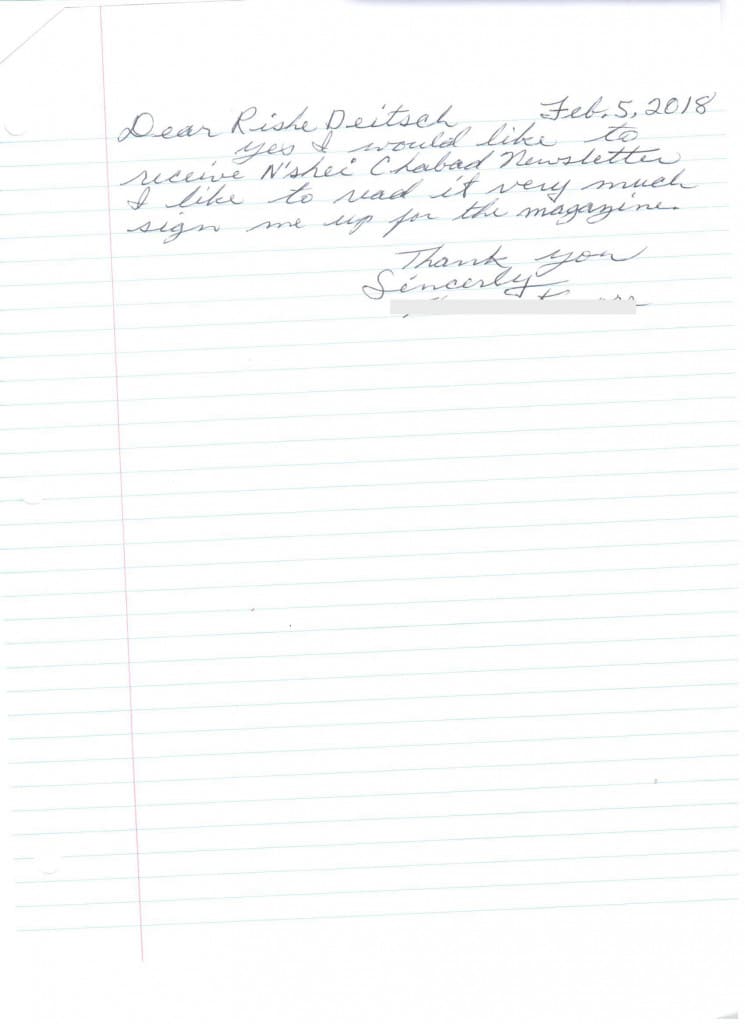 Dear Rishe Deitsch Feb. 5, 2018
yes I would like to
receive N'shei Chabad Newsletter
I like to read it very much
sign me up for the magazine.
Thank you
Sincerly